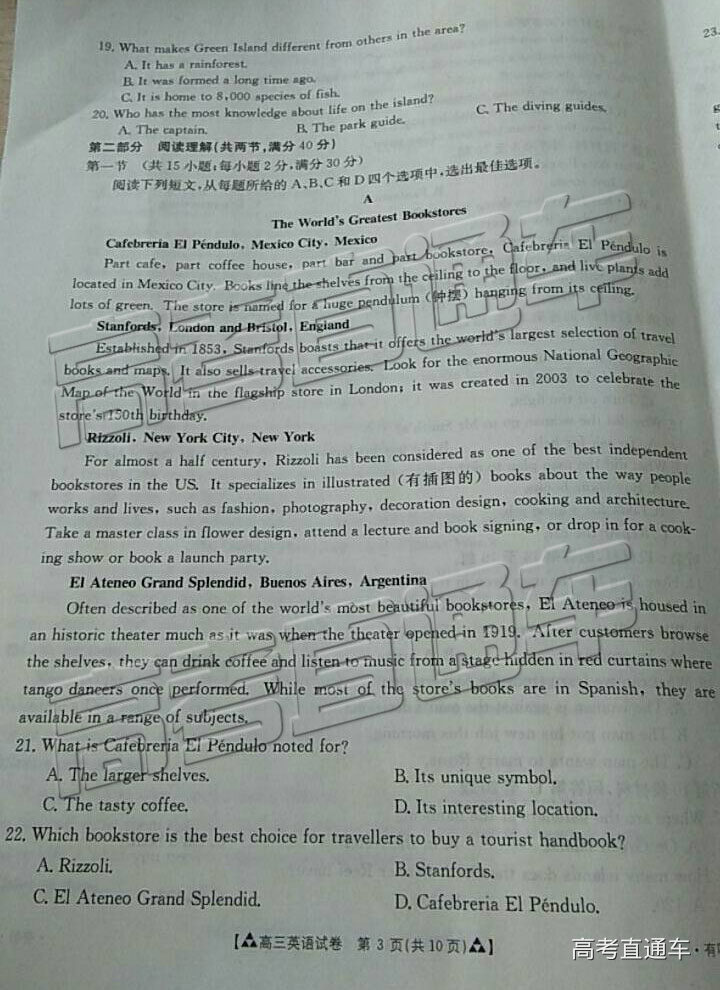 19. What makes Green Island different from others in the area?
A. It has a rainforest.
B. It was formed a long time ago.
C. It is home to 8,000 species of fish.
20. Who has the most knowledge about life on the island?
A. The captain. B. The park guide. C. The diving guides.
第二部分 阅读理解(共两节,满分40分)
第一节 (共15小题;每小题2分,满分30分)
阅读下列短文,从每题所给的A、B、C和D四个选项中,选出最佳选项。
A
The World's Greatest Bookstores
Cafebreria El Péndulo, Mexico City, Mexico
Part cafe, part coffee house, part bar and part bookstore, Cafebreria El Péndulo is
located in Mexico City. Books line the shelves from the ceiling to the floor, and live plants add
lots of green. The store is named for a huge pendulum (钟摆) hanging from its ceiling.
Stanfords, London and Bristol, England
Established in 1853, Stanfords boasts that it offers the world's largest selection of travel
books and maps. It also sells travel accessories. Look for the enormous National Geographic
Map of the World in the flagship store in London; it was created in 2003 to celebrate the
store's 150th birthday.
Rizzoli, New York City, New York
For almost a half century, Rizzoli has been considered as one of the best independent
bookstores in the US. It specializes in illustrated (有插图的) books about the way people
works and lives, such as fashion, photography, decoration design, cooking and architecture.
Take a master class in flower design, attend a lecture and book signing, or drop in for a cook-
ing show or book a launch party.
El Ateneo Grand Splendid, Buenos Aires, Argentina
Often described as one of the world's most beautiful bookstores, El Ateneo is housed in
an historic theater much as it was when the theater opened in 1919. After customers browse
the shelves, they can drink coffee and listen to music from a stage hidden in red curtains where
tango dancers once performed. While most of the store's books are in Spanish, they are
available in a range of subjects.
21. What is Cafebreria El Péndulo noted for?
A. The larger shelves. B. Its unique symbol.
C. The tasty coffee. D. Its interesting location.
22. Which bookstore is the best choice for travellers to buy a tourist handbook?
A. Rizzoli. B. Stanfords.
C. El Ateneo Grand Splendid. D. Cafebreria El Péndulo.
【高三英语试卷 第3页(共10页)】
23.
高考直通车
高考直通车
高考直通车